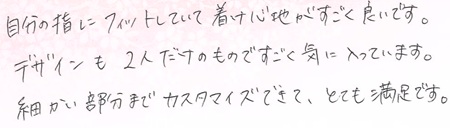 自分の指にフィットしていて着け心地がすごく良いです。
デザインも2人だけのものですごく気に入っています。
細かい部分までカスタマイズできて、とても満足です。